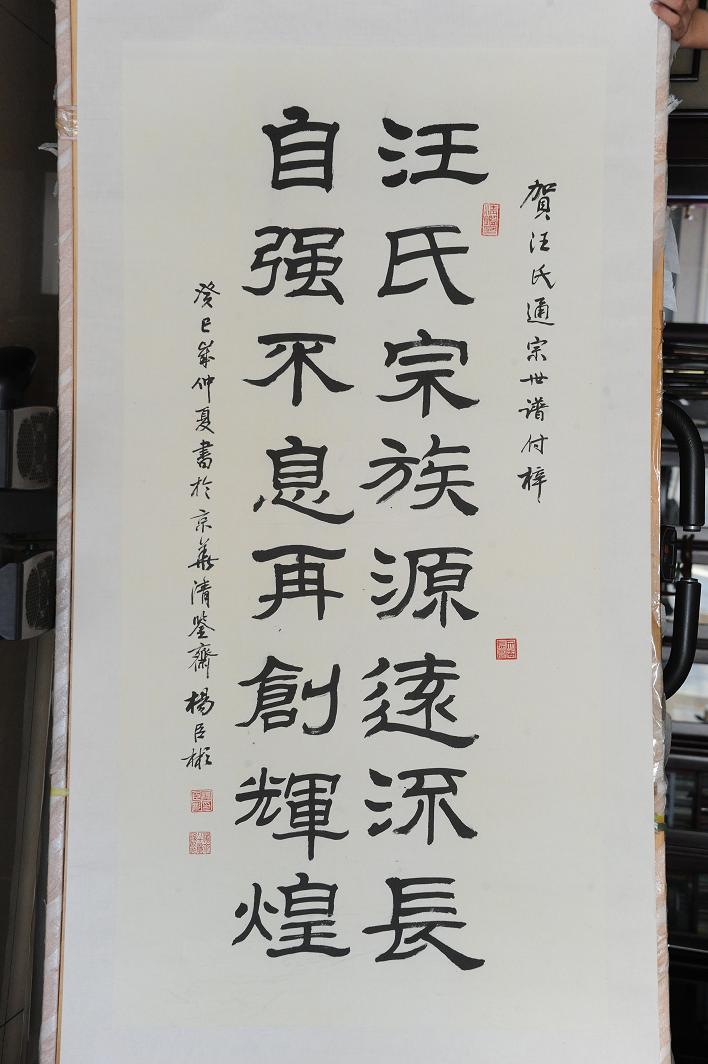 賀汪氏通宗世譜付梓
汪氏宗族源遠流長
自强不息再創輝煌
癸巳歲仲夏書於京華清鑒齋楊臣彬